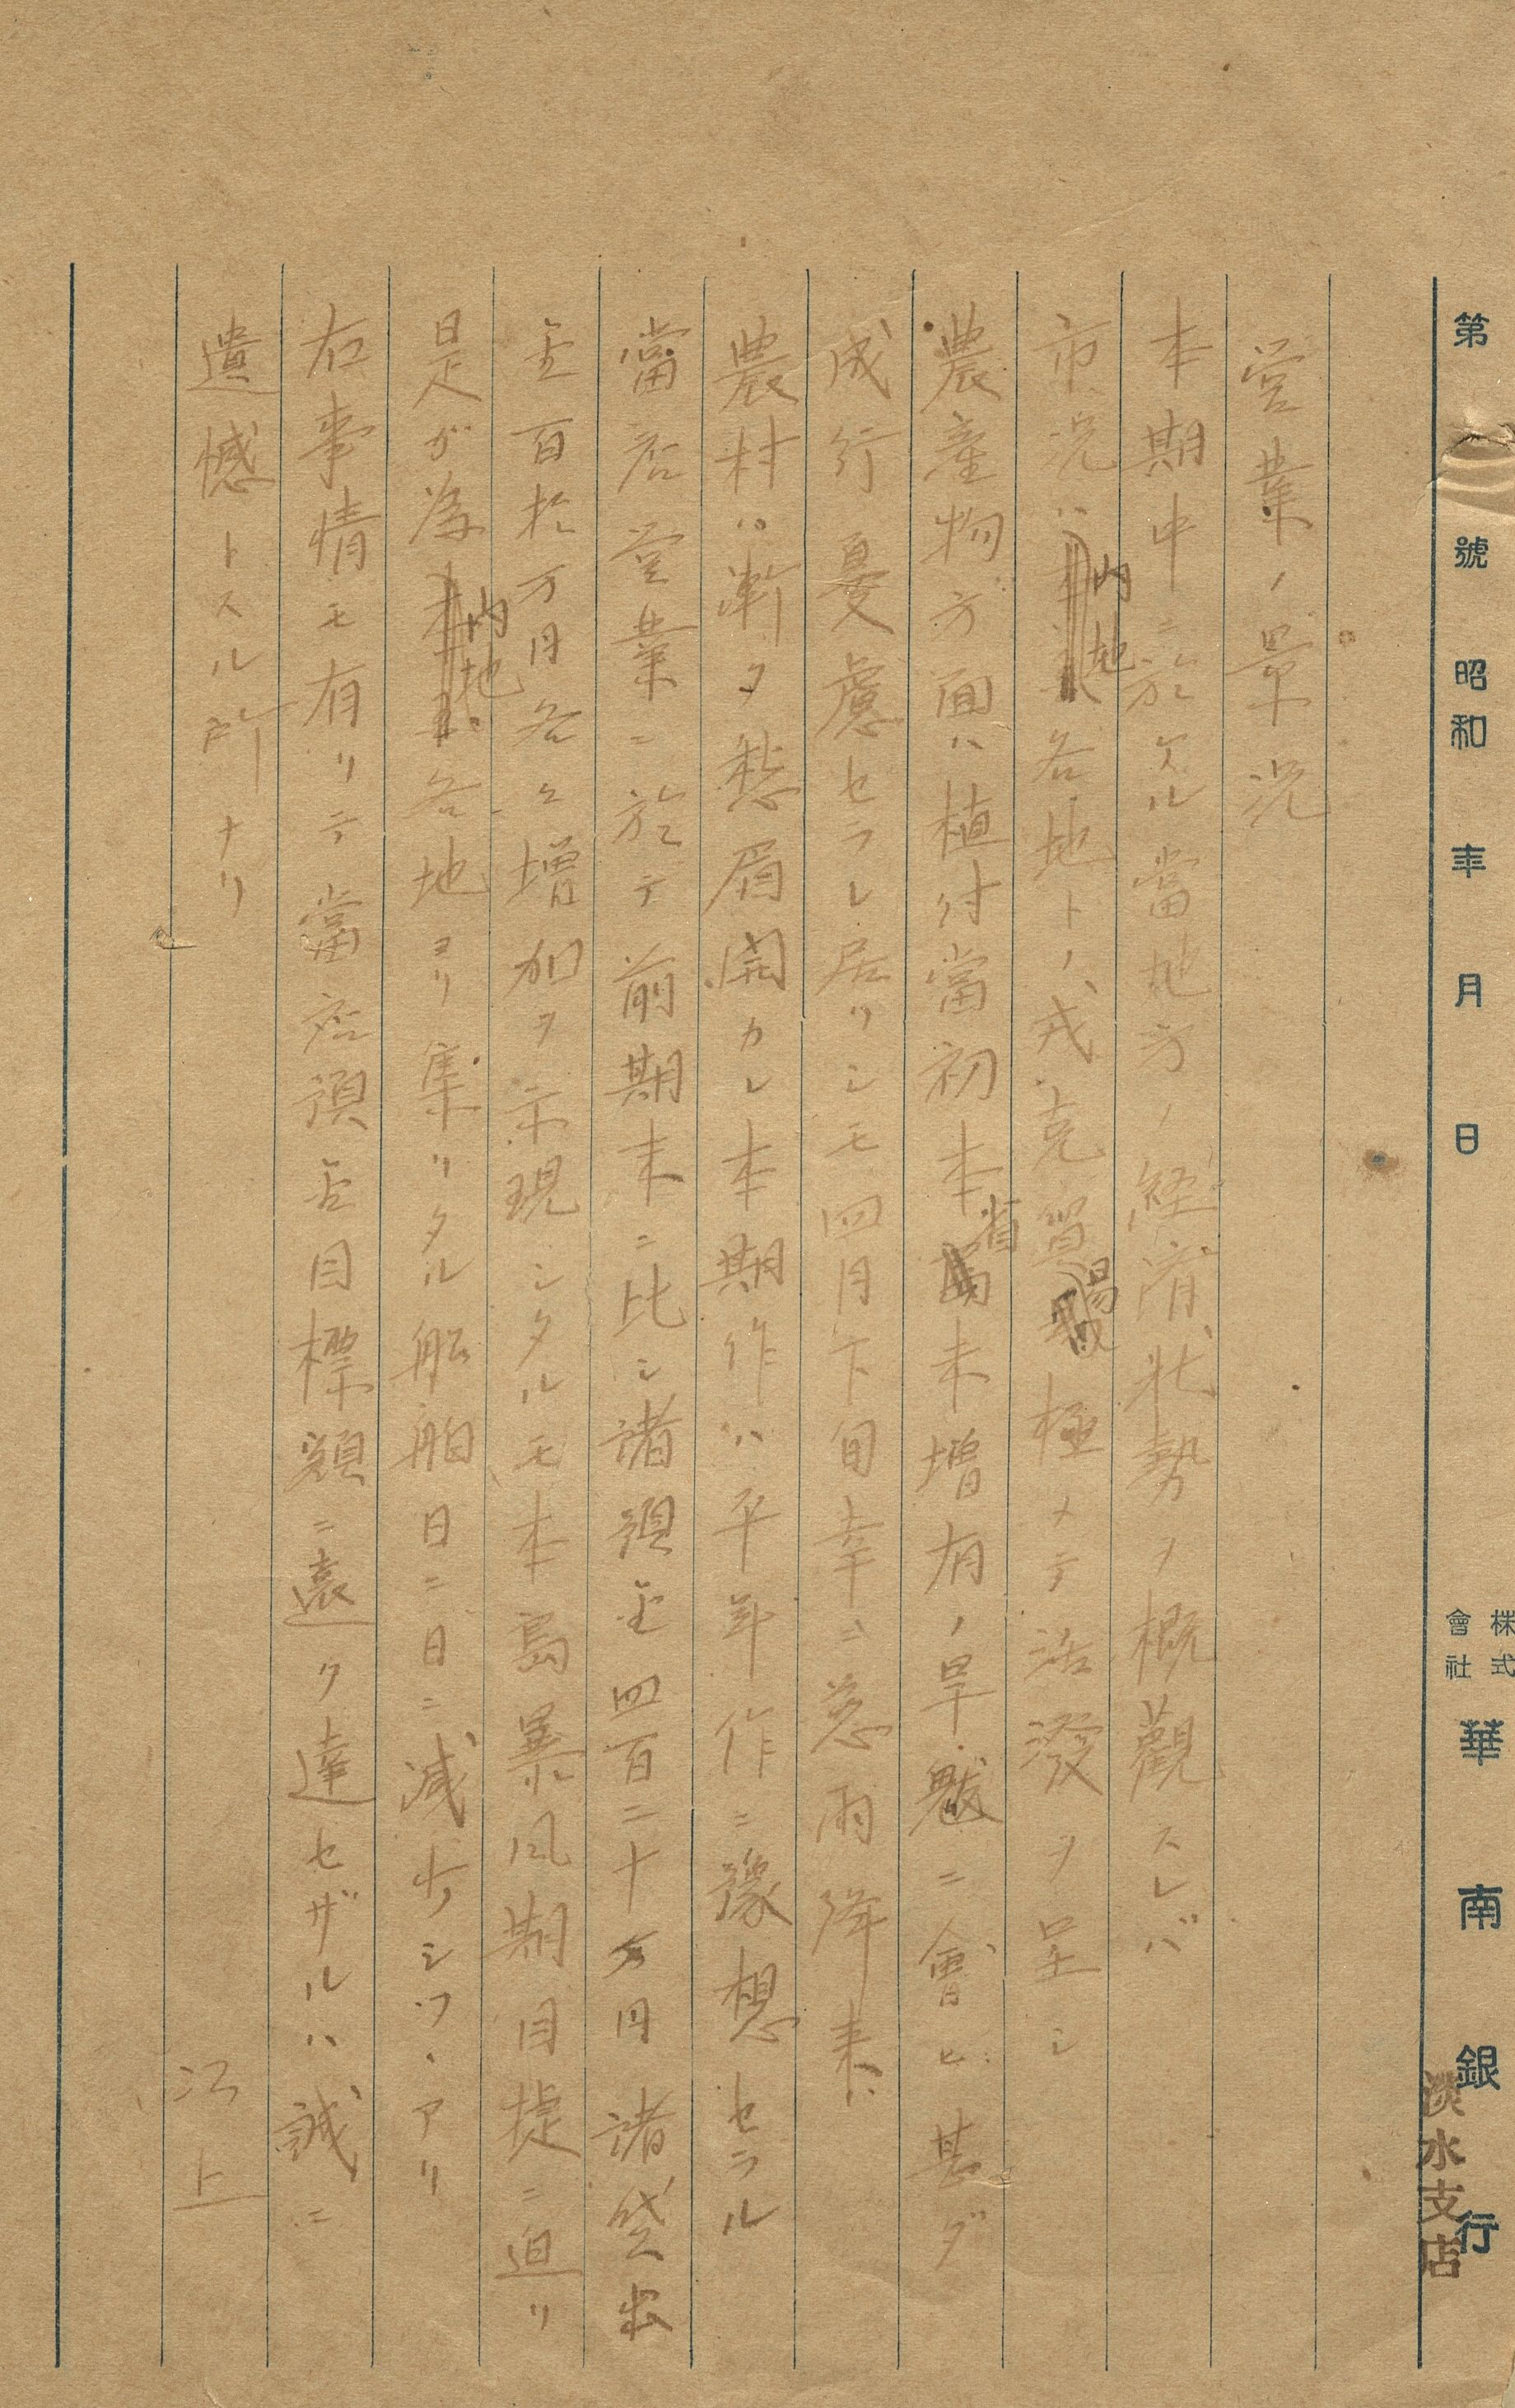 第　號　昭和　年　月　日
株式會社 華南銀行
淡水支店
営業ノ景況
本期中ニ於ケル當地方ノ経済状勢ヲ概觀スレバ
市況ハ内地各地トノ戎克貿易極メテ活潑ヲ呈シ
農産物方面ハ植付當初本省未増有ノ旱魃ニ會ヒ甚ダ
成行憂慮セラレ居リシモ四月下旬幸ニ慈雨降来ハ
農村ハ漸ク愁眉開カレ本期作ハ平年作ニ豫想セラル
當店営業ニ於テ前期末ニ比シ諸預金四百二十万円諸貸出
金百拾万円各々増加ヲ示現シタルモ本島暴風期目捷ニ迫リ
是ガ為内地各地ヨリ集リタル船舶日ニ日ニ減少シツヽアリ
右事情モ有リテ當店預金目標額ニ遠ク達セザルハ誠ニ
遺憾トスル所ナリ
以上